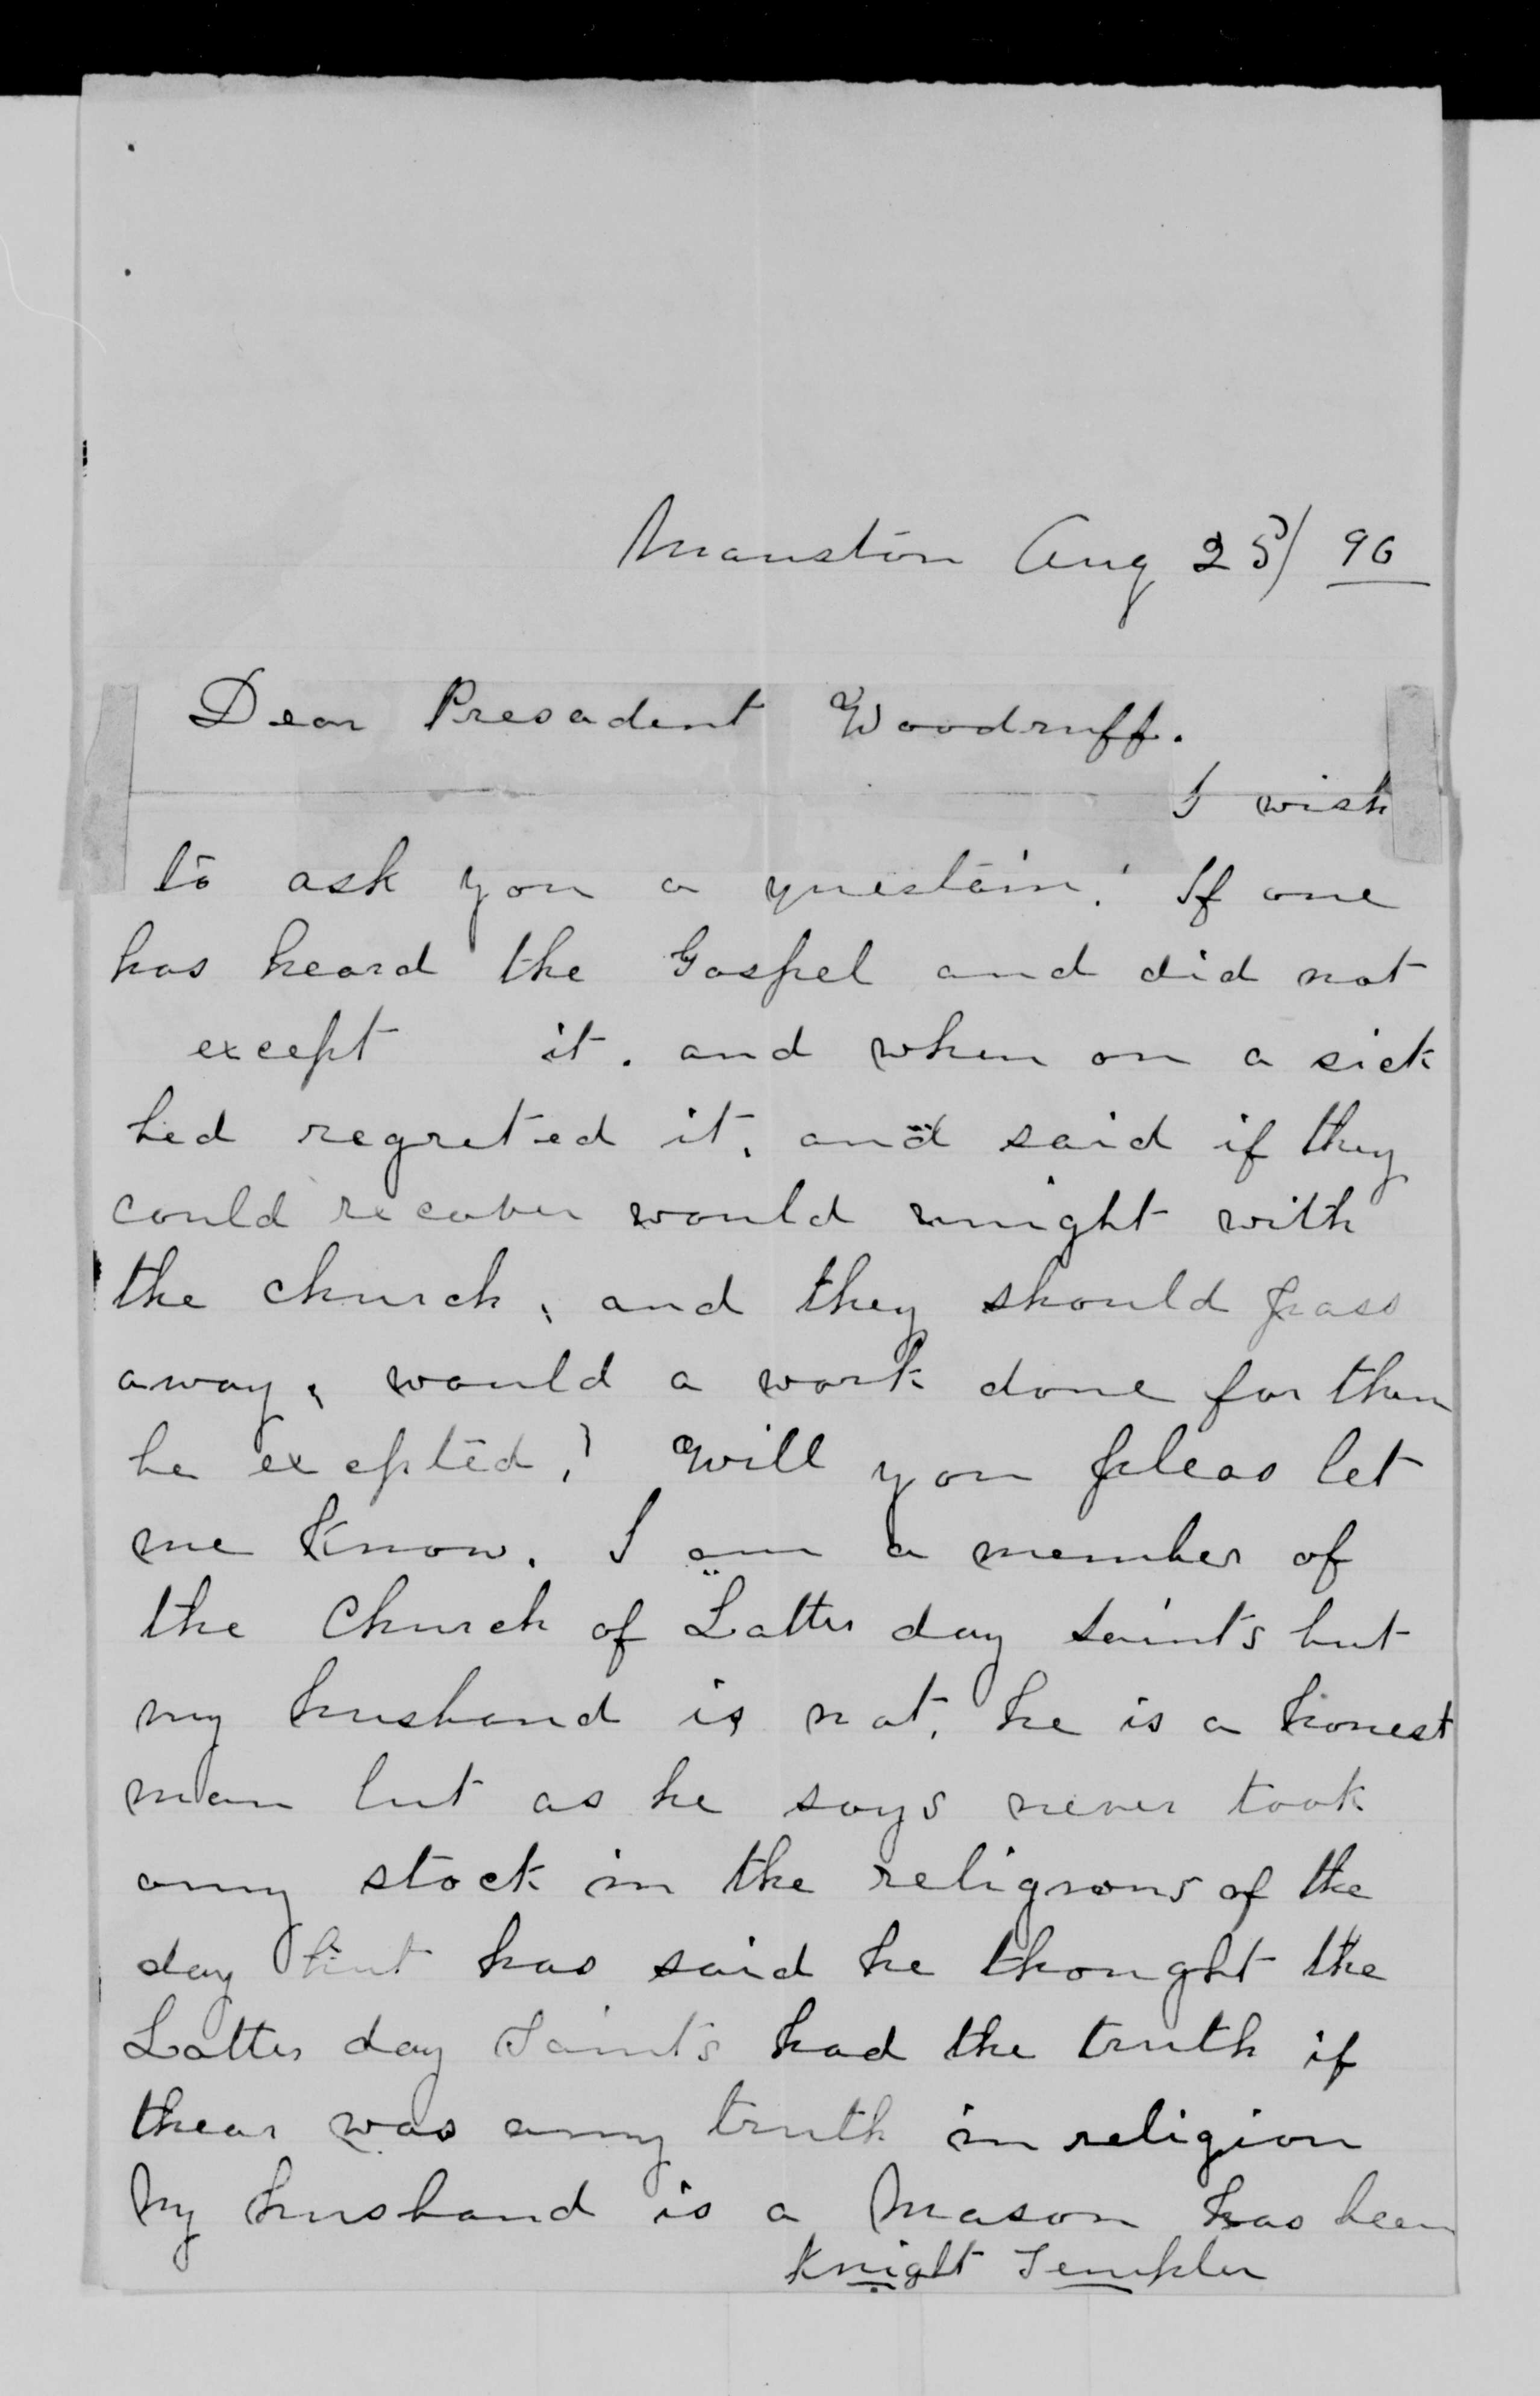 Mauston Aug 25/ 96
Dear Presadent Woodruff.
I wish
to ask you a questain! If one
has heard the Gospel and did not
except it. and when on a sick
bed regreted it, and said if they
could recover would unight with
the church, and they should pass
away, would a work done for them
be excepted? Will you pleas let
me know. I am a member of
the Church of Latter day saints but
my husband is not, he is a honest
man but as he says never took
any stock in the religions of the
day but has said he thought the
Latter day Saints had the truth if
thear was any truth in religion
My husband is a Mason has been
Knight Templer